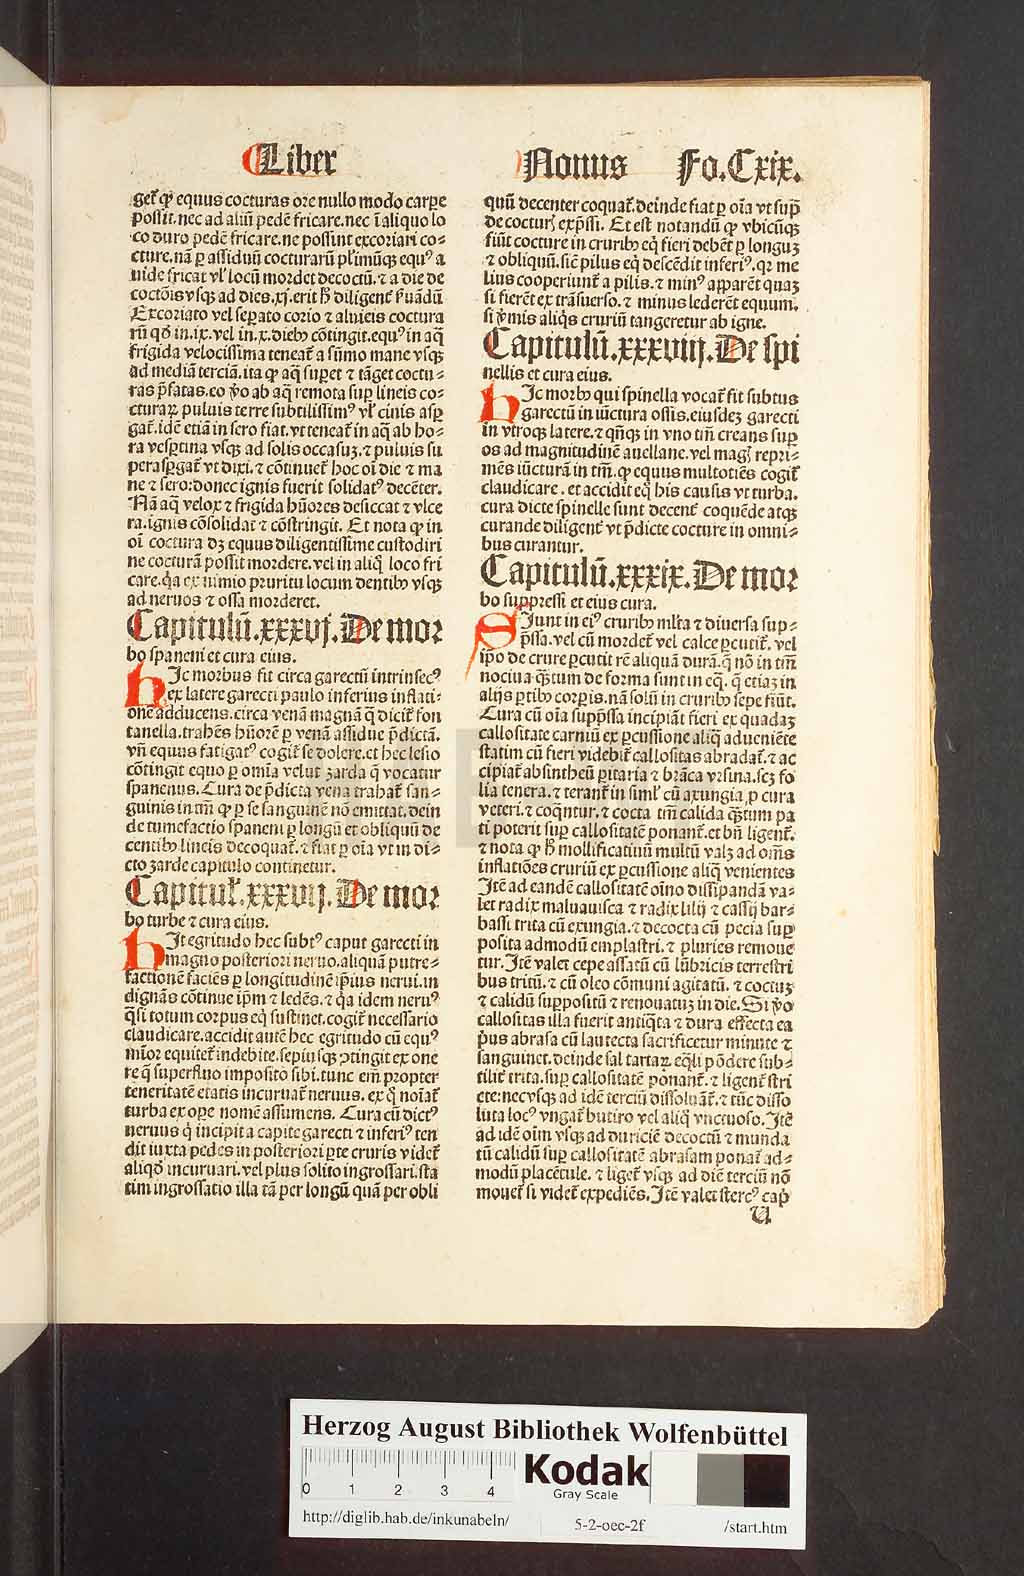 Liber Nonus Fo.Cxix.
get̄ qꝫ equus cocturas ore nullo modo carpe
possit.nec ad aliū pedē fricare.nec ī aliquo lo
co duro pedē fricare.ne possint excoriari co⸗
cture.nā ꝑ assiduū cocturarū pl'imūqꝫ equꝰ a
uide fricat vl' locū mordet decoctū.⁊ a die de
coctōis vsqꝫ ad dies.xj.erit h̄ diligent̄ ẜuādū
Excoriato vel seꝑato corio ⁊ alnieis coctura
rū qd̄ in.ix.vel in.x.diebꝰ cōtingit.equꝰ in aq̄
frigida velocissima teneat̄ a sūmo mane vsqꝫ
ad mediā terciā.ita ꝙ aq̄ suꝑet ⁊ tāget coctu⸗
ras p̄fatas.eo ꝟo ab aq̄ remota suꝑ lineis co⸗
cturaꝝ puluis terre subtilissimꝰ vl' cinis asꝑ
gat̄.idē etiā in sero fiat.vt teneat̄ in aq̄ ab ho⸗
ra vesꝑtina vsqꝫ ad solis occasuꝫ.⁊ puluis su
pera sꝑgat̄ vt dixi.⁊ cōtinuet̄ hoc oī die ⁊ ma
ne ⁊ sero:donec ignis fuerit solidatꝰ decēter.
Nā aq̄ velox ⁊ frigida hūores desiccat ⁊ vlce
ra.ignis cōsolidat ⁊ cōstringit. Et nota ꝙ in
oī coctura dꝫ equus diligentissime custodiri
ne cocturā possit mordere.vel in aliq̊ loco fri
care.q̄a ex nimio pruritu locum dentibꝰ vsqꝫ
ad neruos ⁊ ossa morderet.
Capitulū.xxxvj.De moꝛ
bo spaneni et cura eius.
hIc morbus fit circa garectū intrinsecꝰ
ex latere garecti paulo inferius inflati⸗
onē adducens.circa venā magnā q̄ dicit̄ fon
tanella.trahēs hūorē ꝑ venā assidue p̄dictā.
vn̄ equus fatigatꝰ cogit̄ se dolere.et hec lesio
cōtingit equo ꝑ omīa velut zarda q̄ vocatur
spanenus. Cura de p̄dicta vena trahat̄ san⸗
guinis in tm̄ ꝙ ꝑ se sanguinē nō emittat.dein
de tumefactio spaneni ꝑ longū et obliquū de
centibꝰ lineis decoquat̄.⁊ fiat ꝑ oīa vt in di⸗
cto zarde capitulo continetur.
Capitul'.xxxvij.De moꝛ
bo turbe ⁊ cura eius.
hIt egritudo hec subtꝰ caput garecti in
magno posteriori neruo.aliquā putre⸗
factionē faciēs ꝑ longitudinē ipsius nerui.in
dignās cōtinue ip̄m ⁊ ledēs.⁊ q̄a idem neruꝰ
q̄si totum corpus eq̄ sustinet.cogit̄ necessario
claudicare.accidit autē hec egritudo cū equꝰ
mīor equitet̄ indebite.sepiusqꝫ ↄtingit ex one
re q̄ superfluo imposito sibi.tunc em̄ propter
teneritatē etatis incuruat̄ neruus.ex q̊ noīat̄
turba ex oꝑe nomē assumens. Cura cū dictꝰ
neruus q̄ incipit a capite garecti ⁊ inferiꝰ ten
dit iuxta pedes in posteriori ꝑte cruris videt̄
aliqd̄ incuruari.vel plus solito ingrossari.sta
tim ingrossatio illa tā per longū quā per obli
quū decenter coquat̄.deinde fiat ꝑ oīa vt supꝛ̄
de coctur̄ exp̄ssi. Et est notandū ꝙ vbicūqꝫ
fiūt cocture in cruribꝰ eq̄ fieri debēt ꝑ longuꝫ
⁊ obliquū.sic̄ pilus eq̄ descēdit inferiꝰ.qꝛ me
lius cooperiunt̄ a pilis.⁊ minꝰ apparēt quaꝫ
si fierēt ex trāsuerso.⁊ minus lederēt equum.
si ꝟmis aliq̄s cruriū tangeretur ab igne.
Capitulū.xxxviij.De spi
nellis et cura eius.
hIc morbꝰ qui spinella vocat̄ fit subtus
garectū in iūctura ossis.eiusdeꝫ garecti
in vtroqꝫ latere.⁊ qn̄qꝫ in vno tm̄ creans suꝑ
os ad magnitudinē auellane.vel magꝭ repri⸗
mēs iūcturā in tm̄.ꝙ equus multotiēs cogit̄
claudicare.et accidit eq̄ his causis vt turba.
cura dicte spinelle sunt decent̄ coquēde atqꝫ
curande diligent̄ vt p̄dicte cocture in omni⸗
bus curantur.
Capitulū.xxxix.De moꝛ
bo suppressi et eius cura.
SIunt in eiꝰ cruribꝰ ml̄ta ⁊ diuersa sup⸗
p̄ssa.vel cū mordet̄ vel calce ꝑcutit̄.vel
ip̄o de crure ꝑcutit rē aliquā durā.q̄ nō in tm̄
nociua q̄stum de forma sunt in eq̊.q̄ etiaꝫ in
alijs ꝑtibꝰ corꝑis.nā solū in cruribꝰ sepe fiūt.
Cura cū oīa supp̄ssa incipiāt fieri ex quadaꝫ
callositate carniū ex ꝑcussione aliq̄ adueniēte
statim cū fieri videbit̄ callositas abradat̄.⁊ ac
cipiat̄ absintheū ꝑitaria ⁊ brāca vrsina.scꝫ fo
lia tenera.⁊ terant̄ in siml' cū axungia ꝓcura
veteri.⁊ coq̄ntur.⁊ cocta tm̄ calida q̄stum pa
ti poterit suꝑ callositatē ponant̄.et bn̄ ligent̄.
⁊ nota ꝙ h̄ mollificatiuū multū valꝫ ad om̄s
inflatiōes cruriū ex ꝑcussione aliq̄ venientes
Itē ad eandē callositatē oīno dissipandā va⸗
let radix maluauisca ⁊ radix lilij ⁊ cassij bar⸗
bassi.trita cū exungia.⁊ decocta cū pecia suꝑ
posita admodū emplastri.⁊ pluries remoue
tur. Itē valet cepe assatū cū lūbricis terrestri
bus tritū.⁊ cū oleo cōmuni agitatū.⁊ coctuꝫ
⁊ calidū suppositū ⁊ renouatuꝫ in die.Si ꝟo
callositas illa fuerit antiq̄ta ⁊ dura effecta ea
p̄us abrasa cū lautecta sacrificetur minute ⁊
sanguinet.deinde sal tartaꝝ eq̄li pōdere sub⸗
tilit̄ trita.suꝑ callositatē ponant̄.⁊ ligent̄ stri
cte:necvsqꝫ ad idē terciū dissoluāt̄.⁊ tūc disso
luta locꝰ vngat̄ butiro vel aliq̊ vnctuoso.Itē
ad idē oīm vsqꝫ ad duriciē decoctū ⁊ munda
tū calidū suꝑ callositatē abrasam ponat̄ ad⸗
modū placētule.⁊ liget̄ vsqꝫ ad diē terciū nō
mouet̄ si videt̄ expediēs. Itē valet stercꝰ cap̄
U
Herzog August Bibliothek Wolfenbüttel
0 1 2 3 4
Kodak
Gray Scale
http://diglib.hab.de/inkunabeln/ 5-2-oec-2f /start.htm